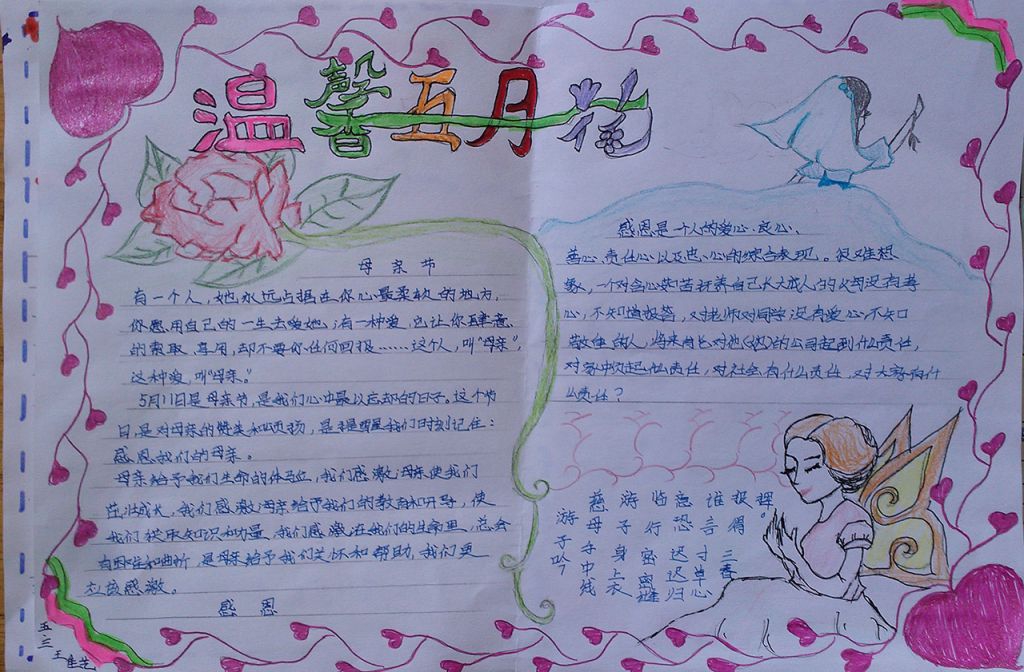 温馨五月花
母亲节
有一个人，她永远占据在你心最柔软的地方，
你愿用自己的一生去爱她；有一种爱，它让你肆意
的索取、享用，却不要你任何回报……这个人，叫“母亲”，
这种爱，叫“母亲。”
5月11日是母亲节，是我们心中最以忘却的日子，这个节
日，是对母亲的赞美和颂扬，是提醒我们时刻记住：
感恩我们的母亲。
母亲给予我们生命的体血，我们感激；母亲使我们
茁壮成长，我们感激；母亲给予我们的教育和开导，使
我们获取知识和力量，我们感激；在我们的生命里，总会
有困难和曲折，是母亲给予我们关怀和帮助，我们更
应该感激。
感恩
感恩是一个人的爱心、良心、
善心、责任心以及忠心的综合表现。很难想
象，一个对含心茹苦抚养自己长大成人的父母没有孝
心，不知道报答，对老师对同学没有爱心，不知
的人，将来能对他(她)的公司起到什么责任，
对家中负起什么责任，对社会有什么责任，对大家有什
么责任？
游子吟
慈母手中线
游子身上衣
临行密密缝
意恐迟迟归
谁言寸草心
报得三春晖
五三
王佳艺